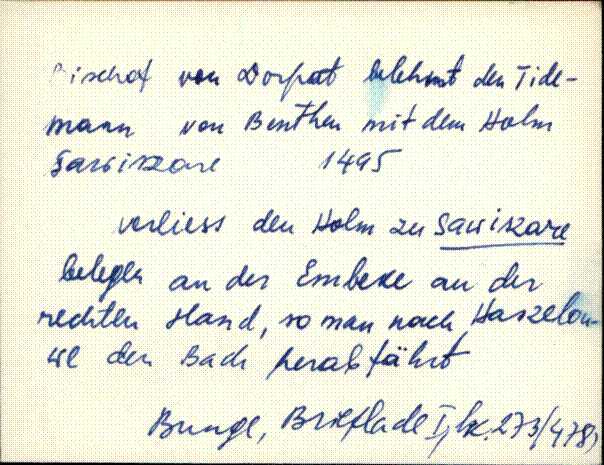 Bischof von Dorpat belehnt den Tide-
mann von Benthen mit dem Holm
Sawiszare 1495
verliess den Holm zu Sawiskare
belegen an der Embeke an der
rechten Hand, so man nach Haszelou-
we den Bach herabfährt
Bunge, Brieflade I, 273/478,